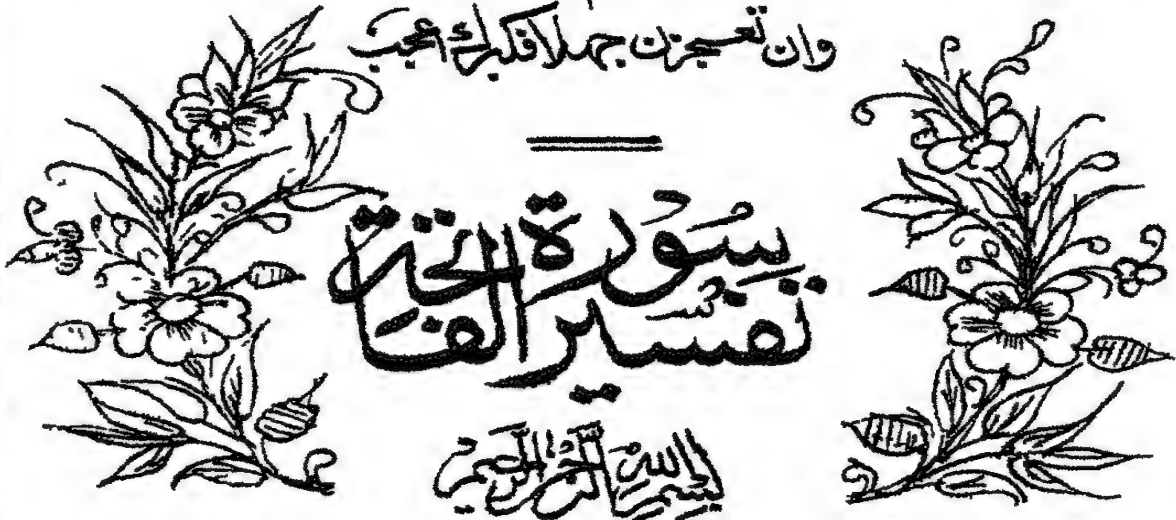 وان تعجزن جهلا فكبرك اعجب
تفسير سورة الفاتحة
بسم الله الرحمن الرحيم